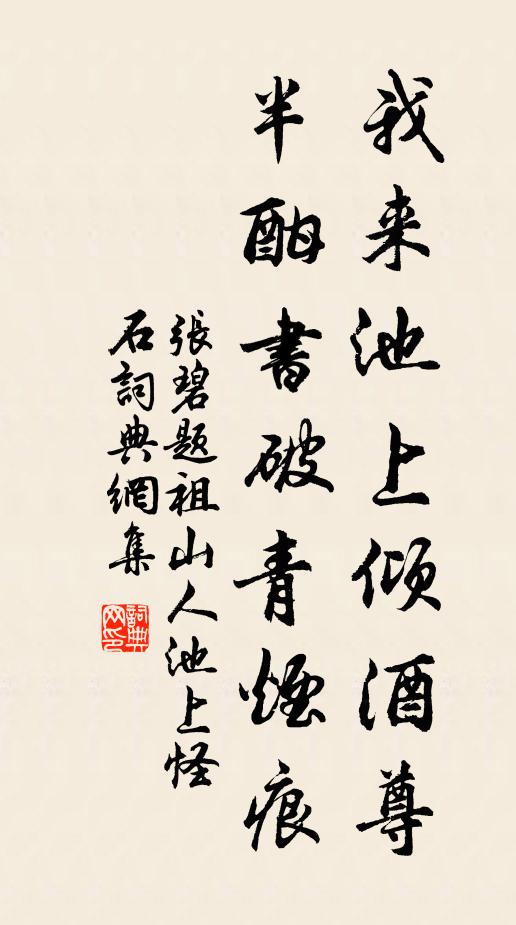 我来池上倾酒尊
半酣書破青煙痕
張碧題祖山人池上怪
石詞典網集
詞典网印